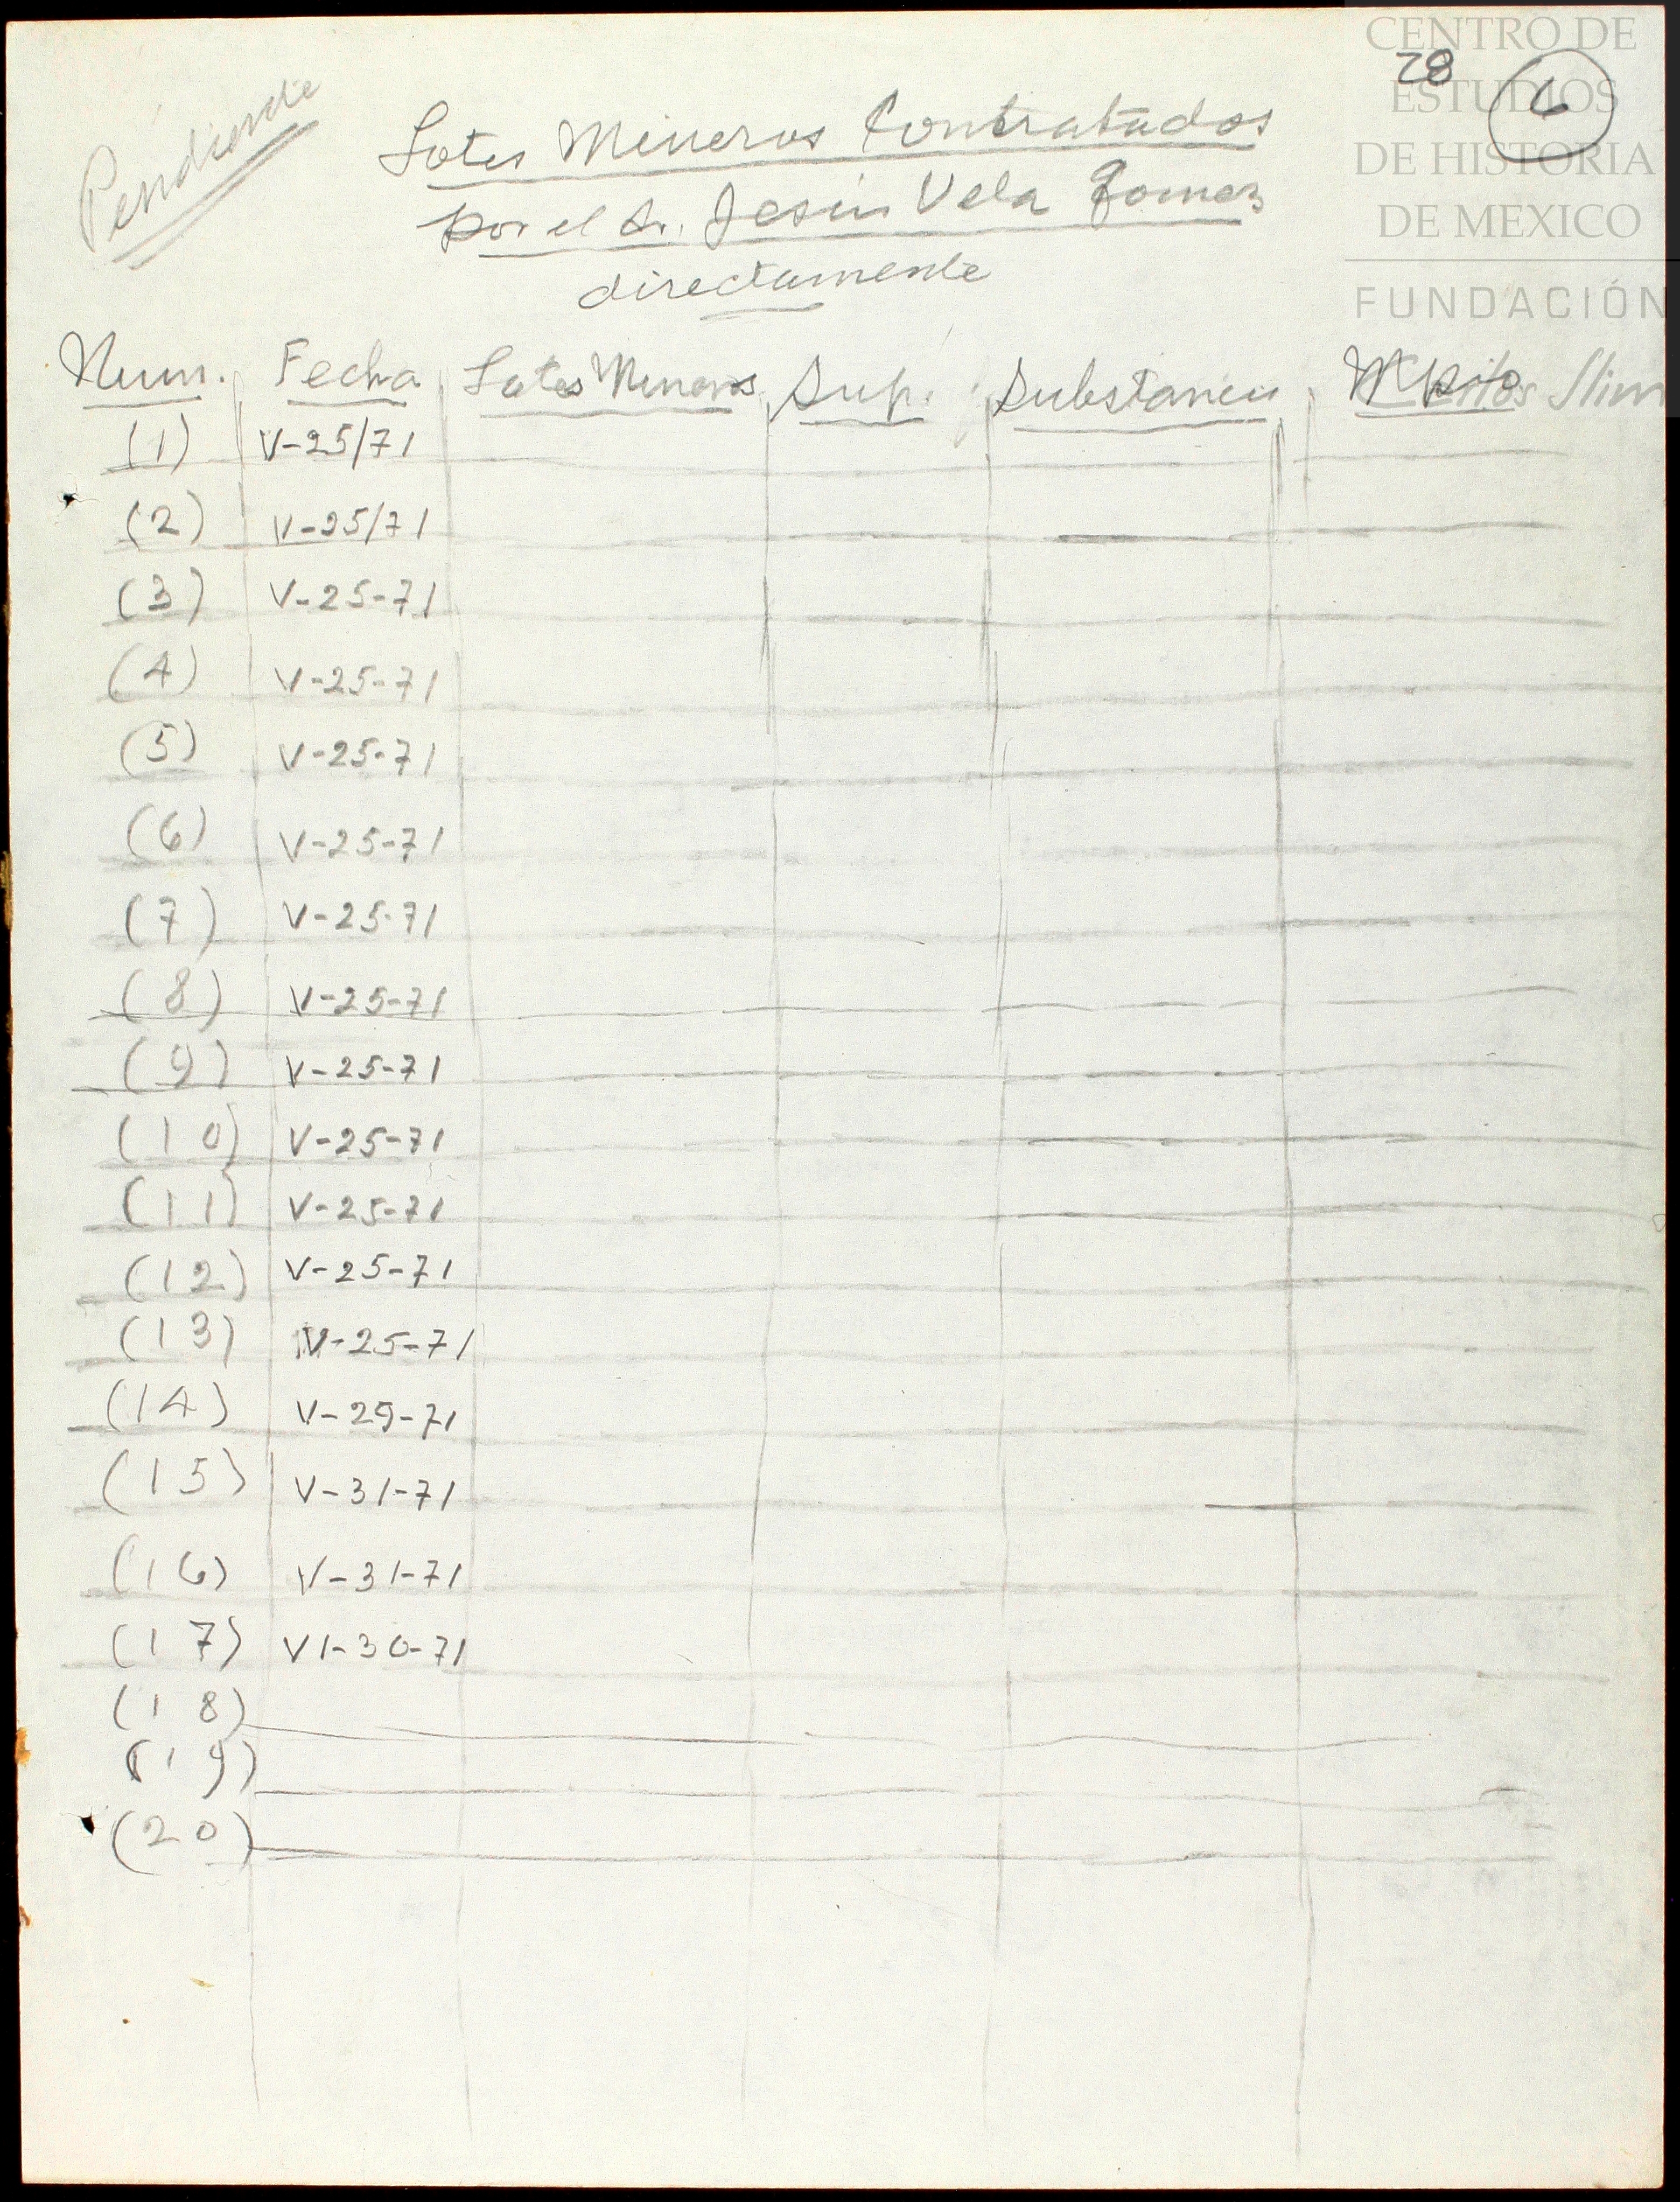 CENTRO DE
ESTUDIOS
DE HISTORIA
DE MEXICO
FUNDACIÓN
Carlos Slim
28
6
Pendiente
Lotes Mineros Contratados
por el Sr. Jesús Vela Gomez
directamente
Num. Fecha Lotes Mineros Sup. Substancia Mpio
(1) V-25/71
(2) V-25/71
(3) V-25-71
(4) V-25-71
(5) V-25-71
(6) V-25-71
(7) V-25-71
(8) V-25-71
(9) V-25-71
(10) V-25-71
(11) V-25-71
(12) V-25-71
(13) V-25-71
(14) V-29-71
(15) V-31-71
(16) V-31-71
(17) VI-30-71
(18)
(19)
(20)